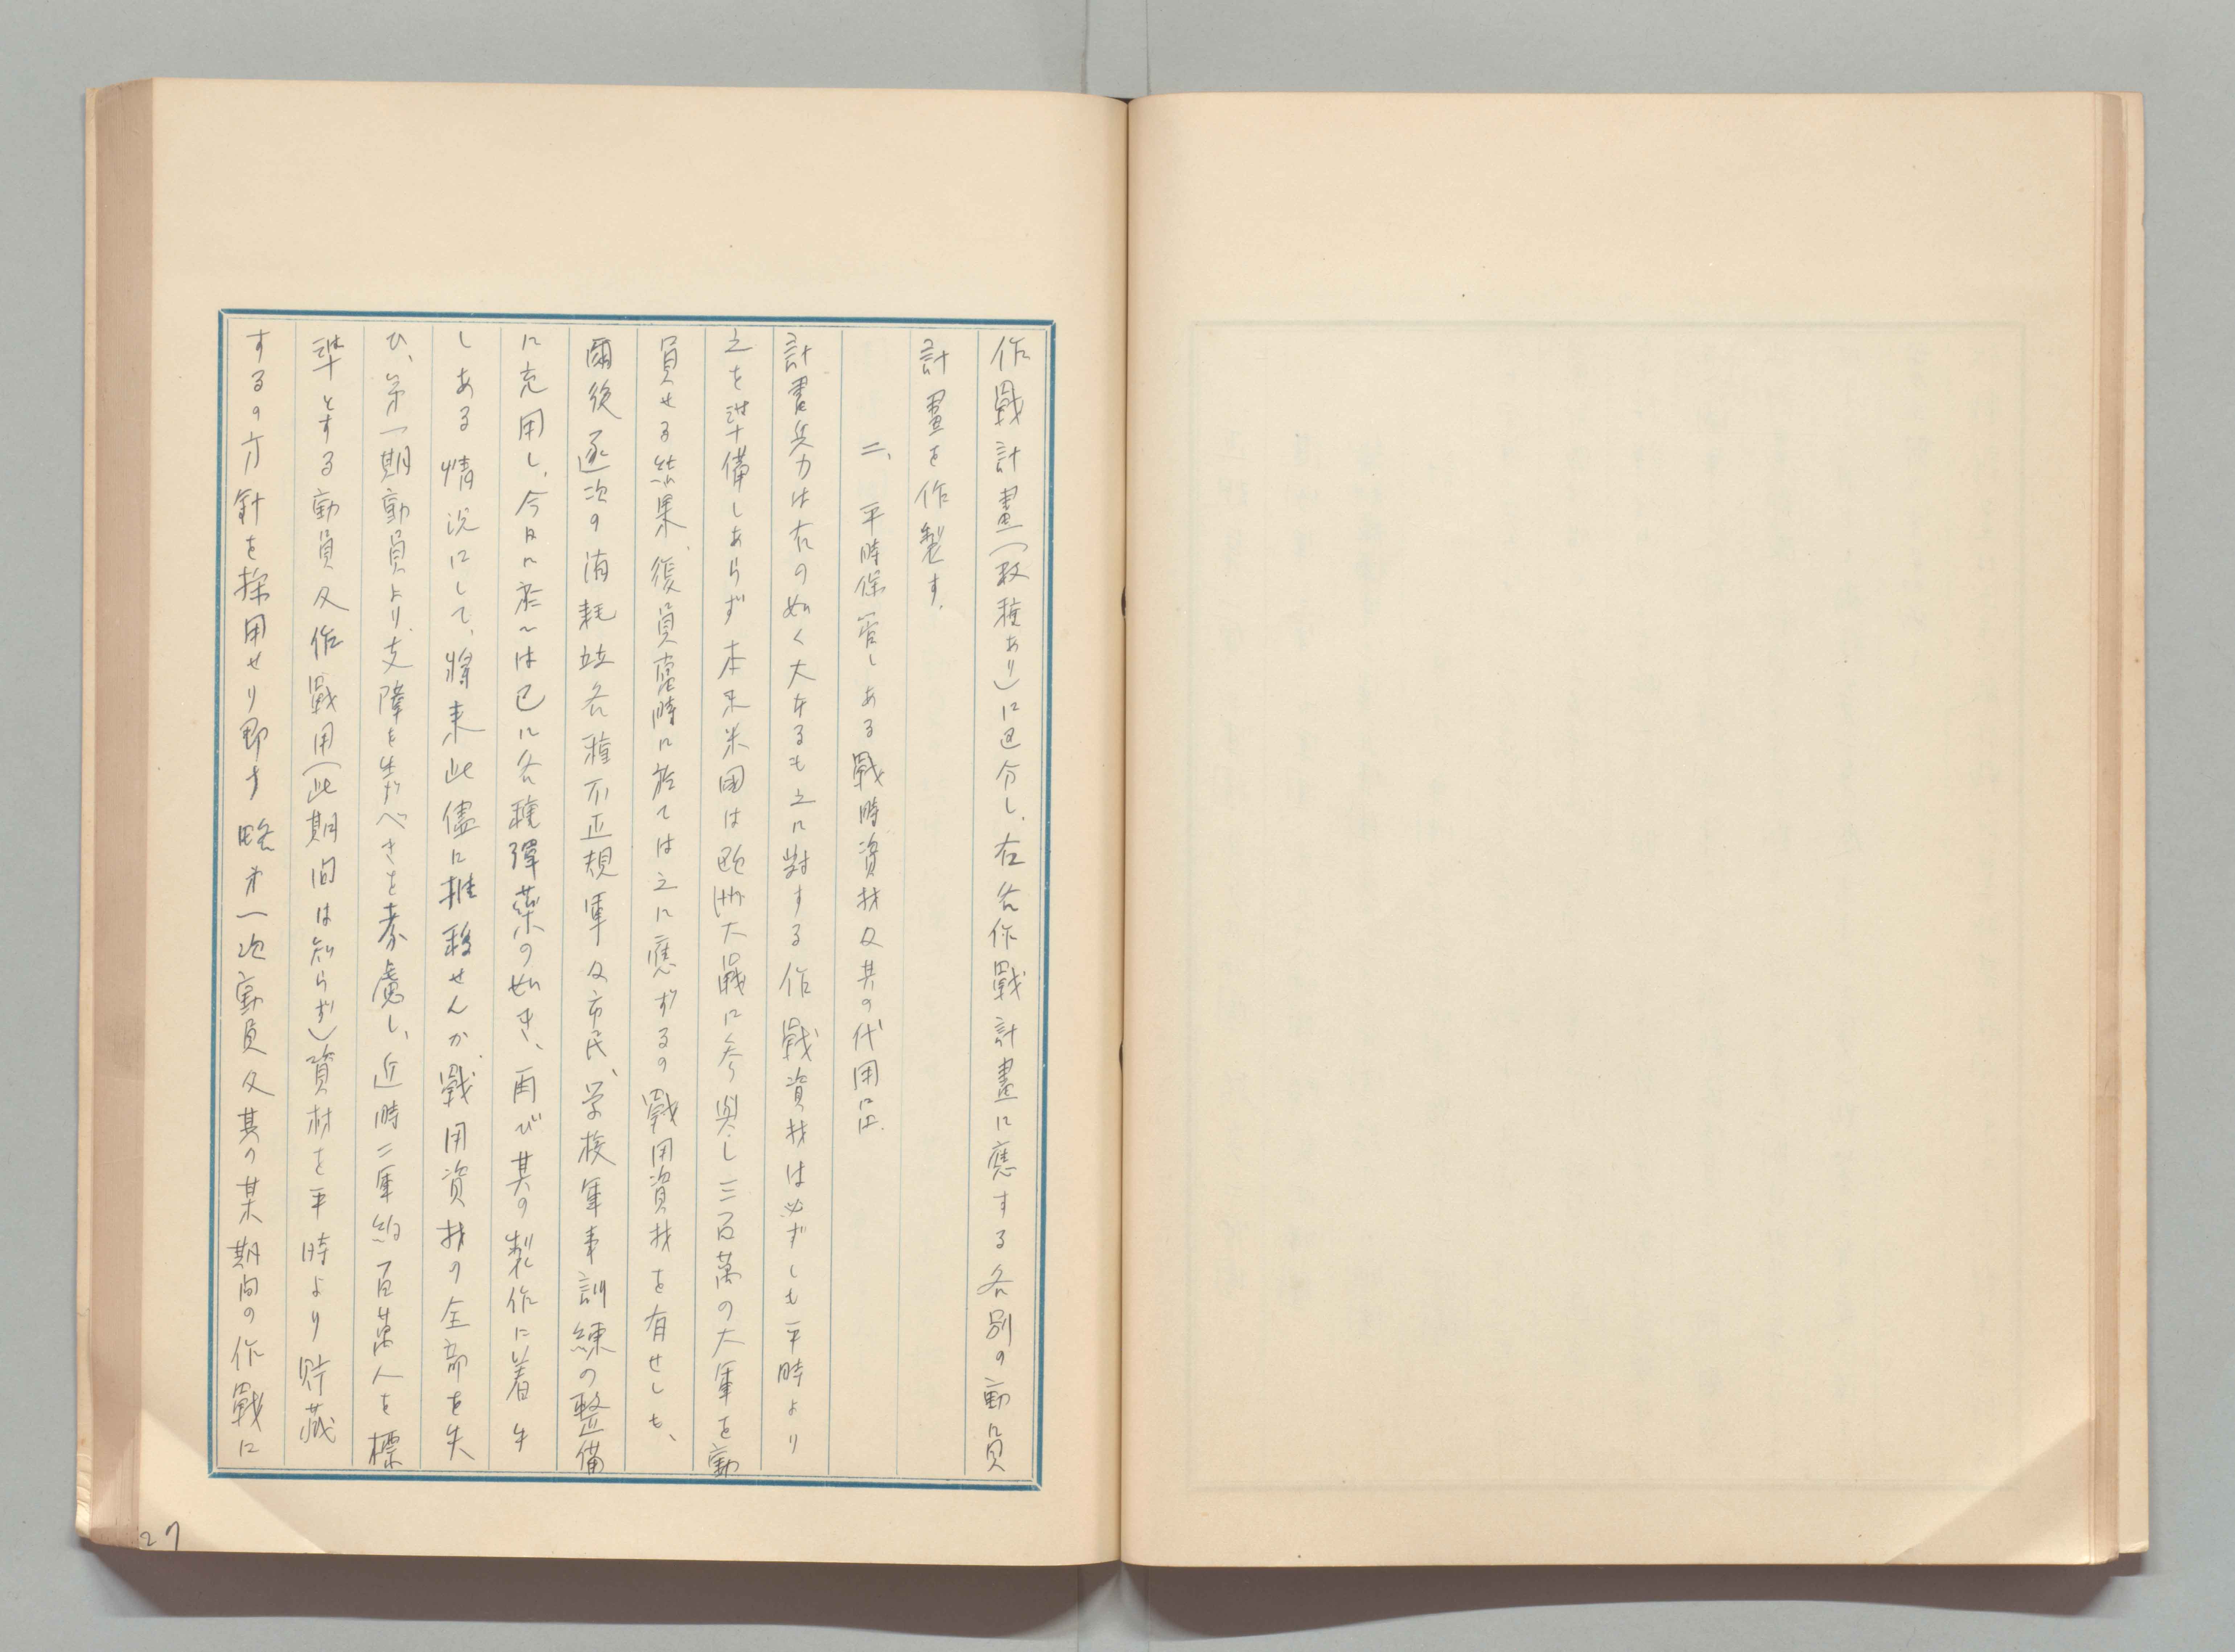 作戰計畫（数種あり）に区分し、右各作戰計畫に應する各別の動員
計畫を作製す、
二、平時保管しある戰時資材及其の代用には、
計畫兵力は右の如く大なるも之に對する作戰資材は必ずしも平時より
之を準備しあらず本来米國は欧洲大戰に参與し三百萬の大軍を動
員せる結果、復員當時に於ては之に應ずるの戰用資材を有せしも、
爾後逐次の消耗並各種不正規軍及市民、学校軍事訓練の整備
に充用し、今日に於ては已に各種彈藥の如き、再び其の製作に着手
しある情況にして、將来此儘に推移せんか戰用資材の全部を失
ひ、第一期動員より支障を生ずべきを考慮し、近時二軍約百萬人を標
準とする動員及作戰用（此期間は知らず）資材を平時より貯藏
するの方針を採用せり即ち略第一次動員及其の某期間の作戰に
27